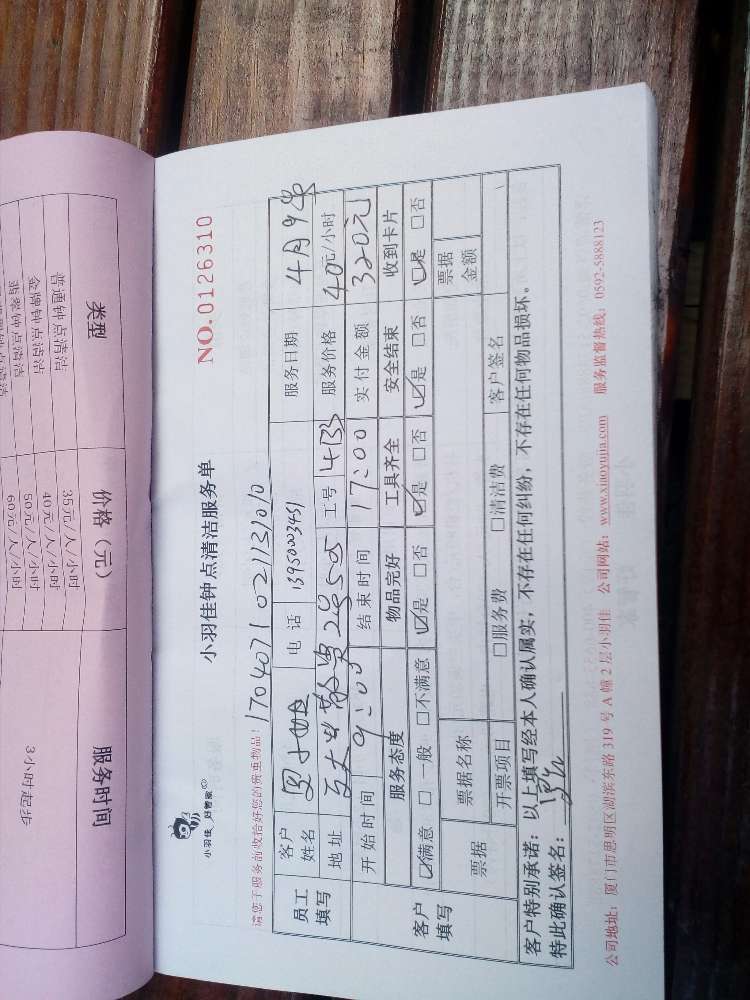 小羽佳 好管家
小羽佳钟点清洁服务单
NO.0126310
请您于服务前收拾好您的贵重物品！ 170407102113101 0
员工填写 客户姓名 电话 13950003451 服务日期 4月9
地址 28505 工号 4133 服务价格 40元/小时
开始时间 9:00 结束时间 17:00 实付金额 320元
客户填写 服务态度 物品完好 工具齐全 安全结束 收到卡片
☑满意 □一般 □不满意 ☑是 □否 ☑是 □否 ☑是 □否 ☑是 □否
票据 票据名称 票据金额
开票项目 □服务费 □清洁费 客户签名
客户特别承诺：以上填写经本人确认属实，不存在任何纠纷，不存在任何物品损坏。
特此确认签名：
公司地址：厦门市思明区湖滨东路 319 号 A 幢 2 层小羽佳 公司网站：www.xiaoyujia.com 服务监督热线：0592-5888123
类型 价格（元） 服务时间
普通钟点清洁 35元/人/小时 3小时起步
金牌钟点清洁 40元/人/小时
翡翠钟点清洁 50元/人/小时
钟点清洁 60元/人/小时